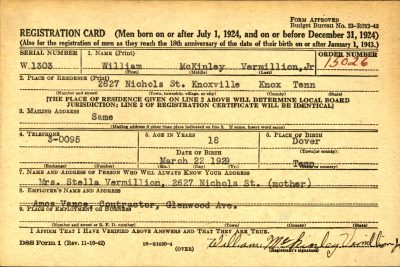 FORM APPROVED
Budget Bureau No. 33-R012-42
REGISTRATION CARD (Men born on or after July 1, 1924, and on or before December 31, 1924)
(Also for the registration of men as they reach the 18th anniversary of the date of their birth on or after January 1, 1943.)
SERIAL NUMBER 1. NAME (Print) ORDER NUMBER
W.1303 William McKinley Vermillion,Jr 15026
(First) (Middle) (Last)
2. PLACE OF RESIDENCE (Print)
2627 Nichols St. Knoxville Knox Tenn
(Number and street) (Town, township, village, or city) (County) (State)
[THE PLACE OF RESIDENCE GIVEN ON LINE 2 ABOVE WILL DETERMINE LOCAL BOARD
JURISDICTION; LINE 2 OF REGISTRATION CERTIFICATE WILL BE IDENTICAL]
3. MAILING ADDRESS
Same
(Mailing address if other than place indicated on line 2. If same, insert word same)
4. TELEPHONE 5. AGE IN YEARS 6. PLACE OF BIRTH
3-0095 18 Dover
DATE OF BIRTH (Town or county)
March 22 1929 Tenn
(Exchange) (Number) (Mo.) (Day) (Yr.) (State or country)
7. NAME AND ADDRESS OF PERSON WHO WILL ALWAYS KNOW YOUR ADDRESS
Mrs. Stella Vermillion, 2627 Nichols St. (mother)
8. EMPLOYER'S NAME AND ADDRESS
Amos Vance, Contractor, Glenwood Ave.
9. PLACE OF EMPLOYMENT OR BUSINESS
(Number and street or R. F. D. number) (Town) (County) (State)
I AFFIRM THAT I HAVE VERIFIED ABOVE ANSWERS AND THAT THEY ARE TRUE.
DSS Form 1 (Rev. 11-16-42) 16-21630-4 (over) William McKinley Vermillion Jr